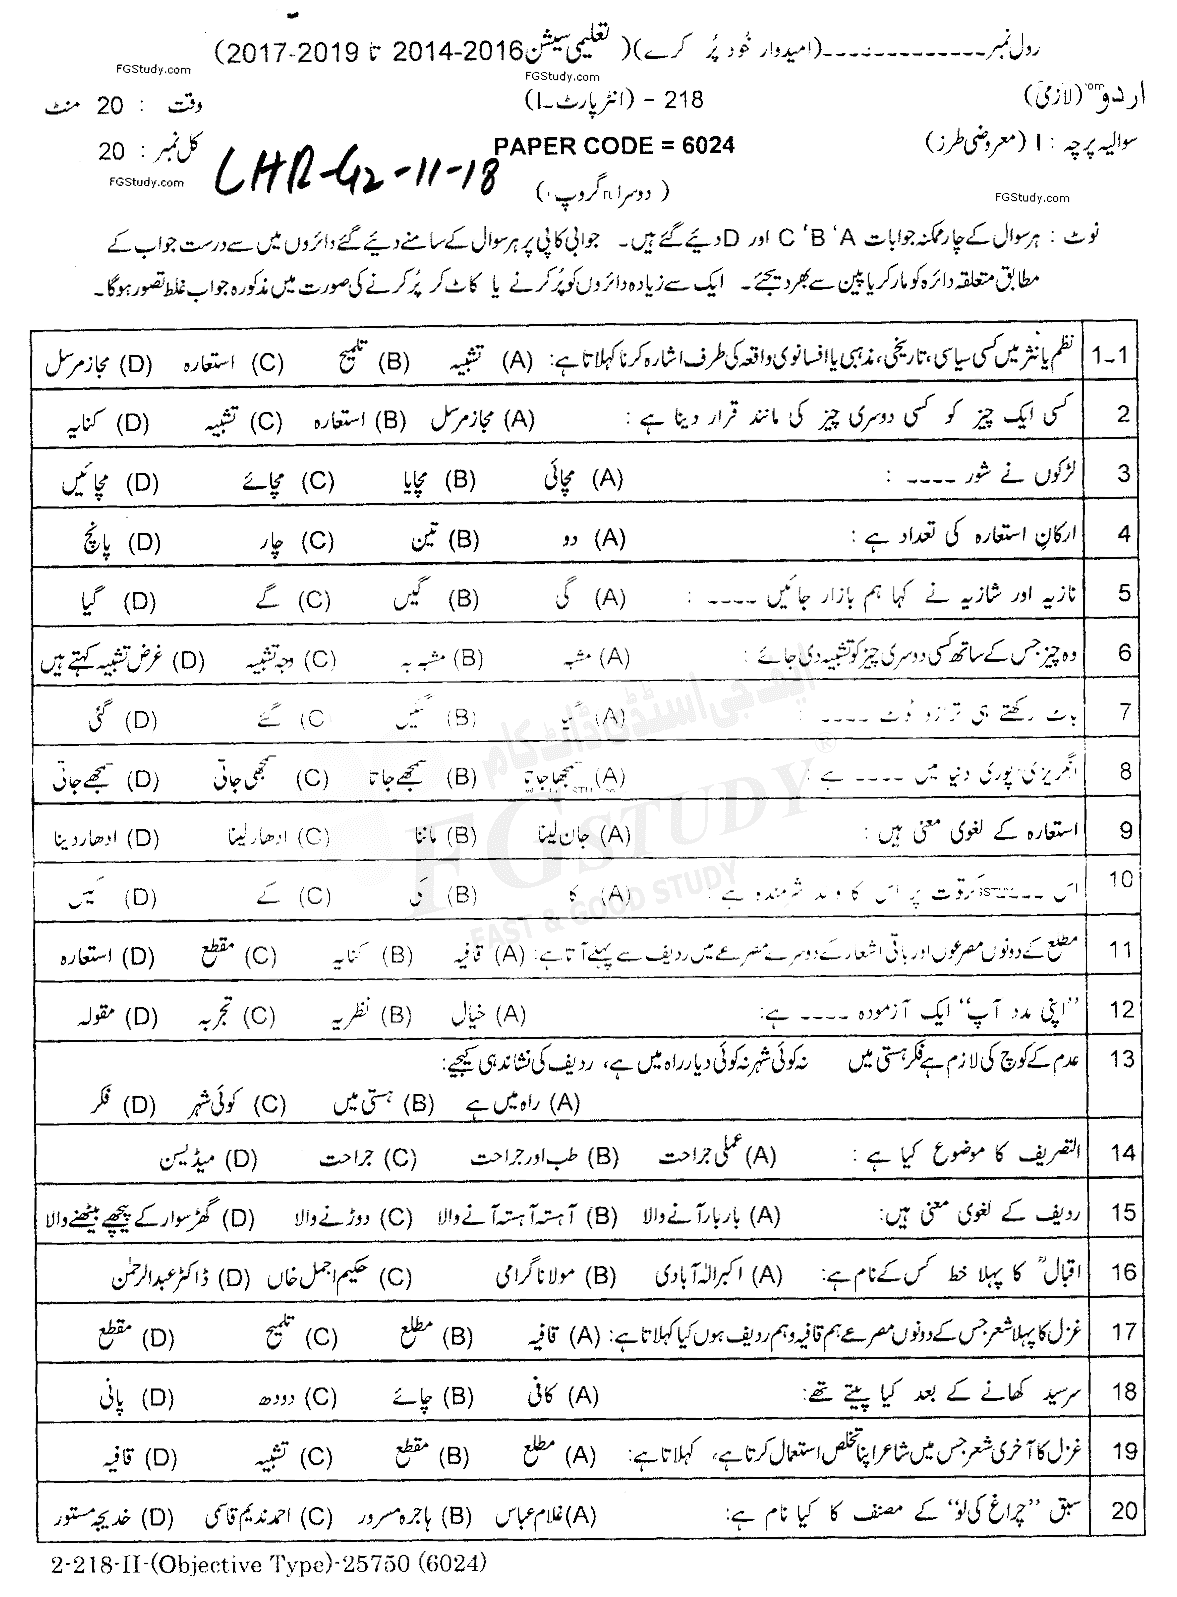 رول نمبر ـ ـ ـ ـ ـ ـ ـ ـ ـ ـ ـ ـ ـ (امیدوار خود پُر کرے)( تعلیمی سیشن 2016-2014 تا 2019-2017)
FGStudy.com
FGStudy.com
اردو (لازمی) 218 - (انٹر پارٹ -I) وقت : 20 منٹ
سوالیہ پرچہ : I (معروضی طرز) PAPER CODE = 6024 کل نمبر : 20
LHR-G2-11-18
FGStudy.com (دوسرا گروپ) FGStudy.com
نوٹ : ہر سوال کے چار ممکنہ جوابات A، B، C اور D دیئے گئے ہیں۔ جوابی کاپی پر ہر سوال کے سامنے دیئے گئے دائروں میں سے درست جواب کے
مطابق متعلقہ دائرہ کو مارکر یا پین سے بھر دیجئے۔ ایک سے زیادہ دائروں کو پُر کرنے یا کاٹ کر پُر کرنے کی صورت میں مذکورہ جواب غلط تصور ہوگا۔
1-1 نظم یا نثر میں کسی سیاسی، تاریخی، مذہبی یا افسانوی واقعہ کی طرف اشارہ کرنا کہلاتا ہے: (A) تشبیہ (B) تلمیح (C) استعارہ (D) مجاز مرسل
2 کسی ایک چیز کو کسی دوسری چیز کی مانند قرار دینا ہے : (A) مجاز مرسل (B) استعارہ (C) تشبیہ (D) کنایہ
3 لڑکوں نے شور ـ ـ ـ ـ : (A) مچائی (B) مچایا (C) مچائے (D) مچائیں
4 ارکانِ استعارہ کی تعداد ہے : (A) دو (B) تین (C) چار (D) پانچ
5 نازیہ اور شازیہ نے کہا ہم بازار جائیں ـ ـ ـ ـ : (A) گی (B) گیں (C) گے (D) گیا
6 وہ چیز جس کے ساتھ کسی دوسری چیز کو تشبیہ دی جائے : (A) مشبہ (B) مشبہ بہ (C) وجہ تشبیہ (D) غرض تشبیہ کہتے ہیں
7 باٹ رکھتے ہی ترازو ٹوٹ ـ ـ ـ ـ : (A) گیا (B) گئیں (C) گئے (D) گئی
8 انگریزی پوری دنیا میں ـ ـ ـ ـ ہے : (A) سمجھا جاتا (B) سمجھے جاتا (C) سمجھی جاتی (D) سمجھے جاتی
9 استعارہ کے لغوی معنی ہیں : (A) جان لینا (B) ماننا (C) ادھار لینا (D) ادھار دینا
10 اس ـ ـ ـ ـ کرتوت پر اس کا والد شرمندہ ہے : (A) کا (B) کی (C) کے (D) کیں
11 مطلع کے دونوں مصرعوں اور باقی اشعار کے دوسرے مصرعے میں ردیف سے پہلے آتا ہے: (A) قافیہ (B) کنایہ (C) مقطع (D) استعارہ
12 ’’اپنی مدد آپ‘‘ ایک آزمودہ ـ ـ ـ ـ ہے: (A) خیال (B) نظریہ (C) تجربہ (D) مقولہ
13 عدم کے کوچ کی لازم ہے فکر ہستی میں نہ کوئی شہر نہ کوئی دیار راہ میں ہے، ردیف کی نشاندہی کیجیے:
(A) راہ میں ہے (B) ہستی میں (C) کوئی شہر (D) فکر
14 التصریف کا موضوع کیا ہے : (A) عملی جراحت (B) طب اور جراحت (C) جراحت (D) میڈیسن
15 ردیف کے لغوی معنی ہیں: (A) بار بار آنے والا (B) آہستہ آہستہ آنے والا (C) دوڑنے والا (D) گھڑ سوار کے پیچھے بیٹھنے والا
16 اقبالؒ کا پہلا خط کس کے نام ہے: (A) اکبر الٰہ آبادی (B) مولانا گرامی (C) حکیم اجمل خاں (D) ڈاکٹر عبدالرحمٰن
17 غزل کا پہلا شعر جس کے دونوں مصرعے ہم قافیہ و ہم ردیف ہوں کیا کہلاتا ہے: (A) قافیہ (B) مطلع (C) تلمیح (D) مقطع
18 سرسید کھانے کے بعد کیا پیتے تھے: (A) کافی (B) چائے (C) دودھ (D) پانی
19 غزل کا آخری شعر جس میں شاعر اپنا تخلص استعمال کرتا ہے، کہلاتا ہے: (A) مطلع (B) مقطع (C) تشبیہ (D) قافیہ
20 سبق ’’چراغ کی لَو‘‘ کے مصنف کا کیا نام ہے: (A) غلام عباس (B) ہاجرہ مسرور (C) احمد ندیم قاسمی (D) خدیجہ مستور
2-218-II-(Objective Type)-25750 (6024)
ایف جی اسٹڈی ڈاٹ کام
FG STUDY ®
FAST & GOOD STUDY